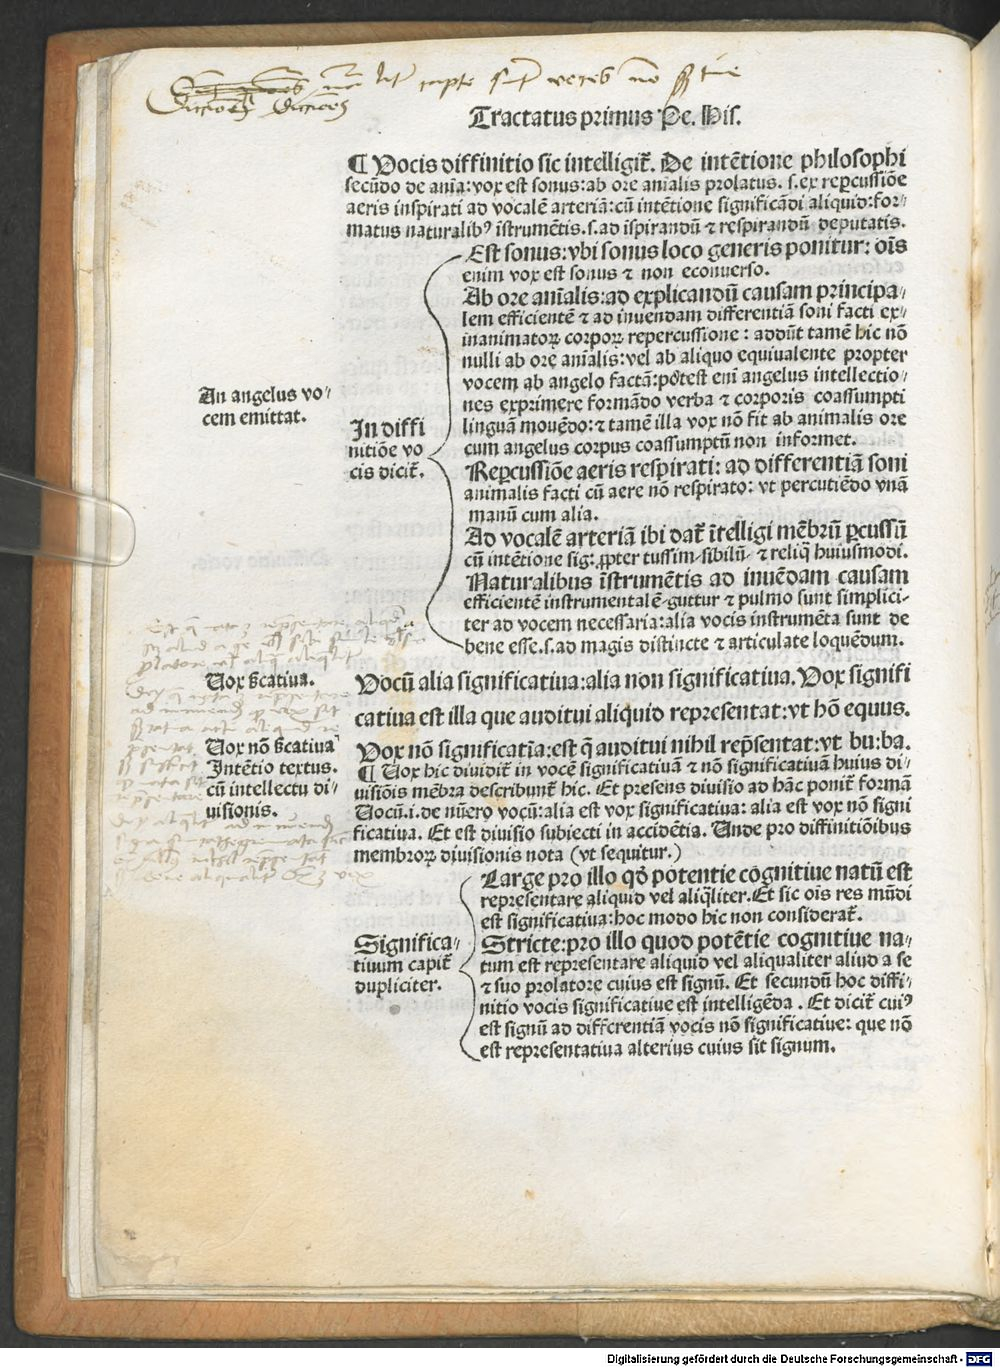 Tractatus primus Pe. His.
¶ Vocis diffinitio sic intelligit̄. De intētione philosophi
secūdo de aīa: vox est sonus: ab ore aīalis prolatus. s. ex rep̱cussiōe
aeris inspirati ad vocalē arteriā: cū intētione significādi aliquid: for-
matus naturalibꝰ īstrumētis. s. ad īspirandū ⁊ respirandū deputatis.
Est sonus: vbi sonus loco generis ponitur: oīs
enim vox est sonus ⁊ non econuerso.
Ab ore aīalis: ad explicandū causam principa-
lem efficientē ⁊ ad inuendam differentiā soni facti ex
inanimatoꝝ corpoꝝ repercussione: addūt tamē hic nō
nulli ab ore aīalis: vel ab aliquo equiualente propter
vocem ab angelo factā: pōtest enī angelus intellectio-
nes exprimere formādo verba ⁊ corporis coassumpti
linguā mouēdo: ⁊ tamē illa vox nō fit ab animalis ore
cum angelus corpus coassumptū non informet.
Rep̱cussiōe aeris respirati: ad differentiā soni
animalis facti cū aere nō respirato: vt percutiēdo vnā
manū cum alia.
Ad vocalē arteriā ibi dat̄ ītelligi mēbrū p̱cussū
cū intētione sig: ꝓpter tussim, sibilū, ⁊ reliq̄ huiusmodi.
Naturalibus īstrumētis ad inuēdam causam
efficientē instrumentalē, guttur ⁊ pulmo sunt simplici-
ter ad vocem necessaria: alia vocis instrumēta sunt de
bene esse. s. ad magis distincte ⁊ articulate loquēdum.
An angelus vo-
cem emittat.
In diffi
nitiōe vo
cis dicit̄.
Vocū alia significatiua: alia non significatiua. Vox signifi
catiua est illa que auditui aliquid representat: vt hō equus.
Vox nō significatīa: est q̄ auditui nihil rep̄sentat: vt bu: ba.
Vox s̄catiua.
Vox nō s̄catiua
Intētio textus.
cū intellectu di-
uisionis.
¶ Vox hic diuidit̄ in vocē significatiuā ⁊ nō significatiuā huius di-
uisiōis mēbra describunt̄ hic. Et presens diuisio ad hāc ponit̄ formā
Vocū. i. de nūero vocū: alia est vox significatiua: alia est vox nō signi
ficatiua. Et est diuisio subiecti in accidētia. Unde pro diffinitiōibus
membroꝝ diuisionis nota (vt sequitur.)
Large pro illo qd̄ potentie cognitiue natū est
representare aliquid vel aliq̄liter. Et sic oīs res mūdi
est significatiua: hoc modo hic non considerat̄.
Significa-
tiuum capit̄
dupliciter.
Stricte: pro illo quod potētie cognitiue na-
tum est representare aliquid vel aliqualiter aliud a se
⁊ suo prolatore cuius est signū. Et secundū hoc diffi-
nitio vocis significatiue est intelligēda. Et dicit̄ cuiꝰ
est signū ad differentiā vocis nō significatiue: que nō
est representatiua alterius cuius sit signum.
Digitalisierung gefördert durch die Deutsche Forschungsgemeinschaft - DFG